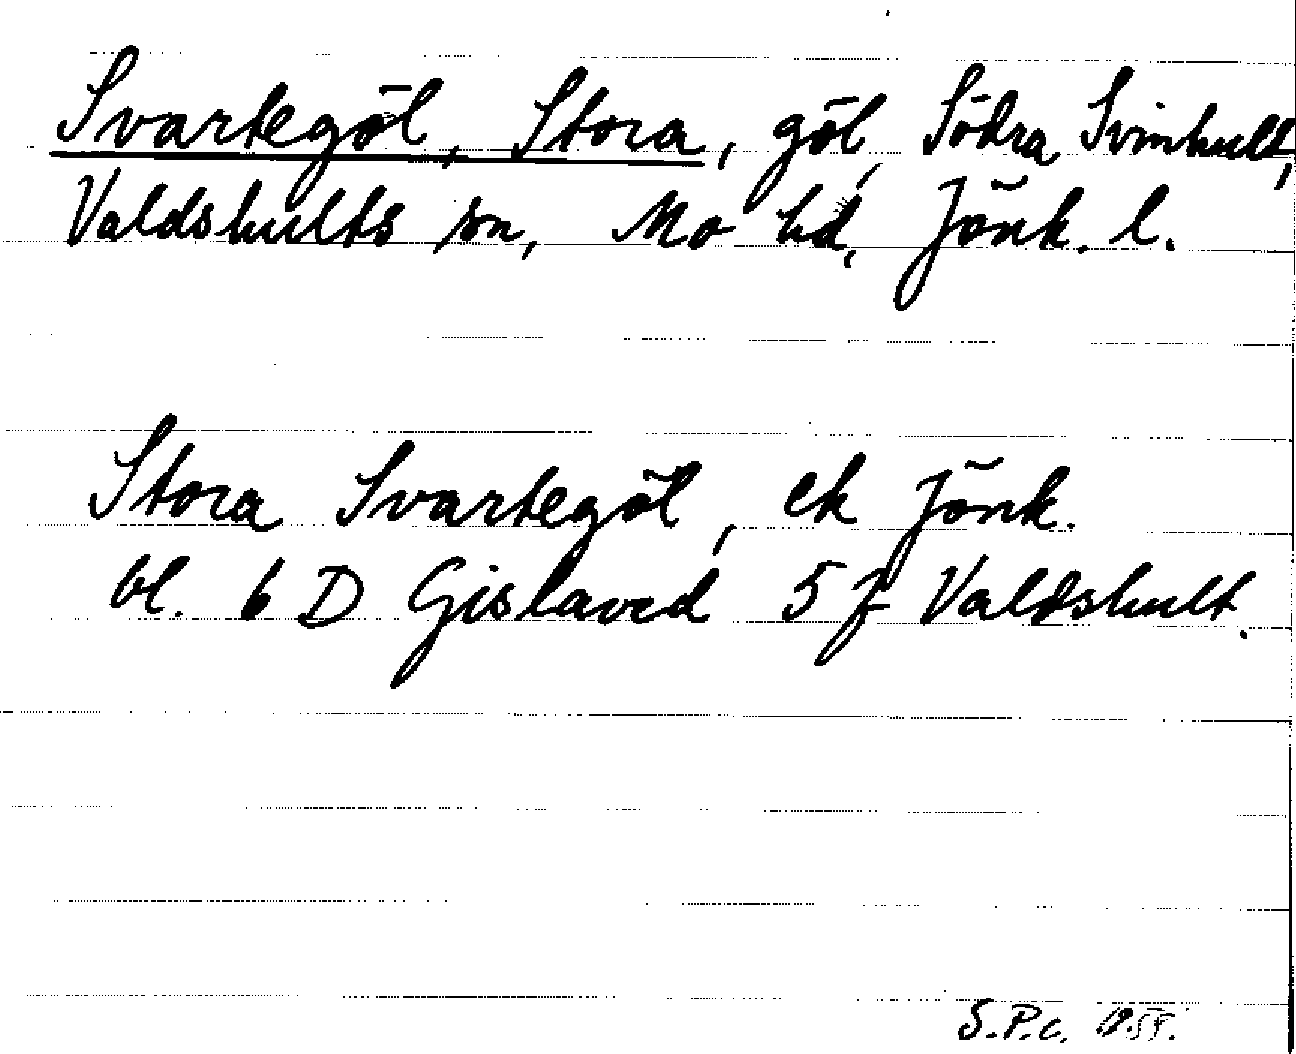 Svartegöl, Stora, göl, Södra Svinhult,
Valdshults sn, Mo hd, Jönk. l.
Stora Svartegöl, ek Jönk.
bl. 6 D Gislaved 5 f Valdshult.
S.P.c.